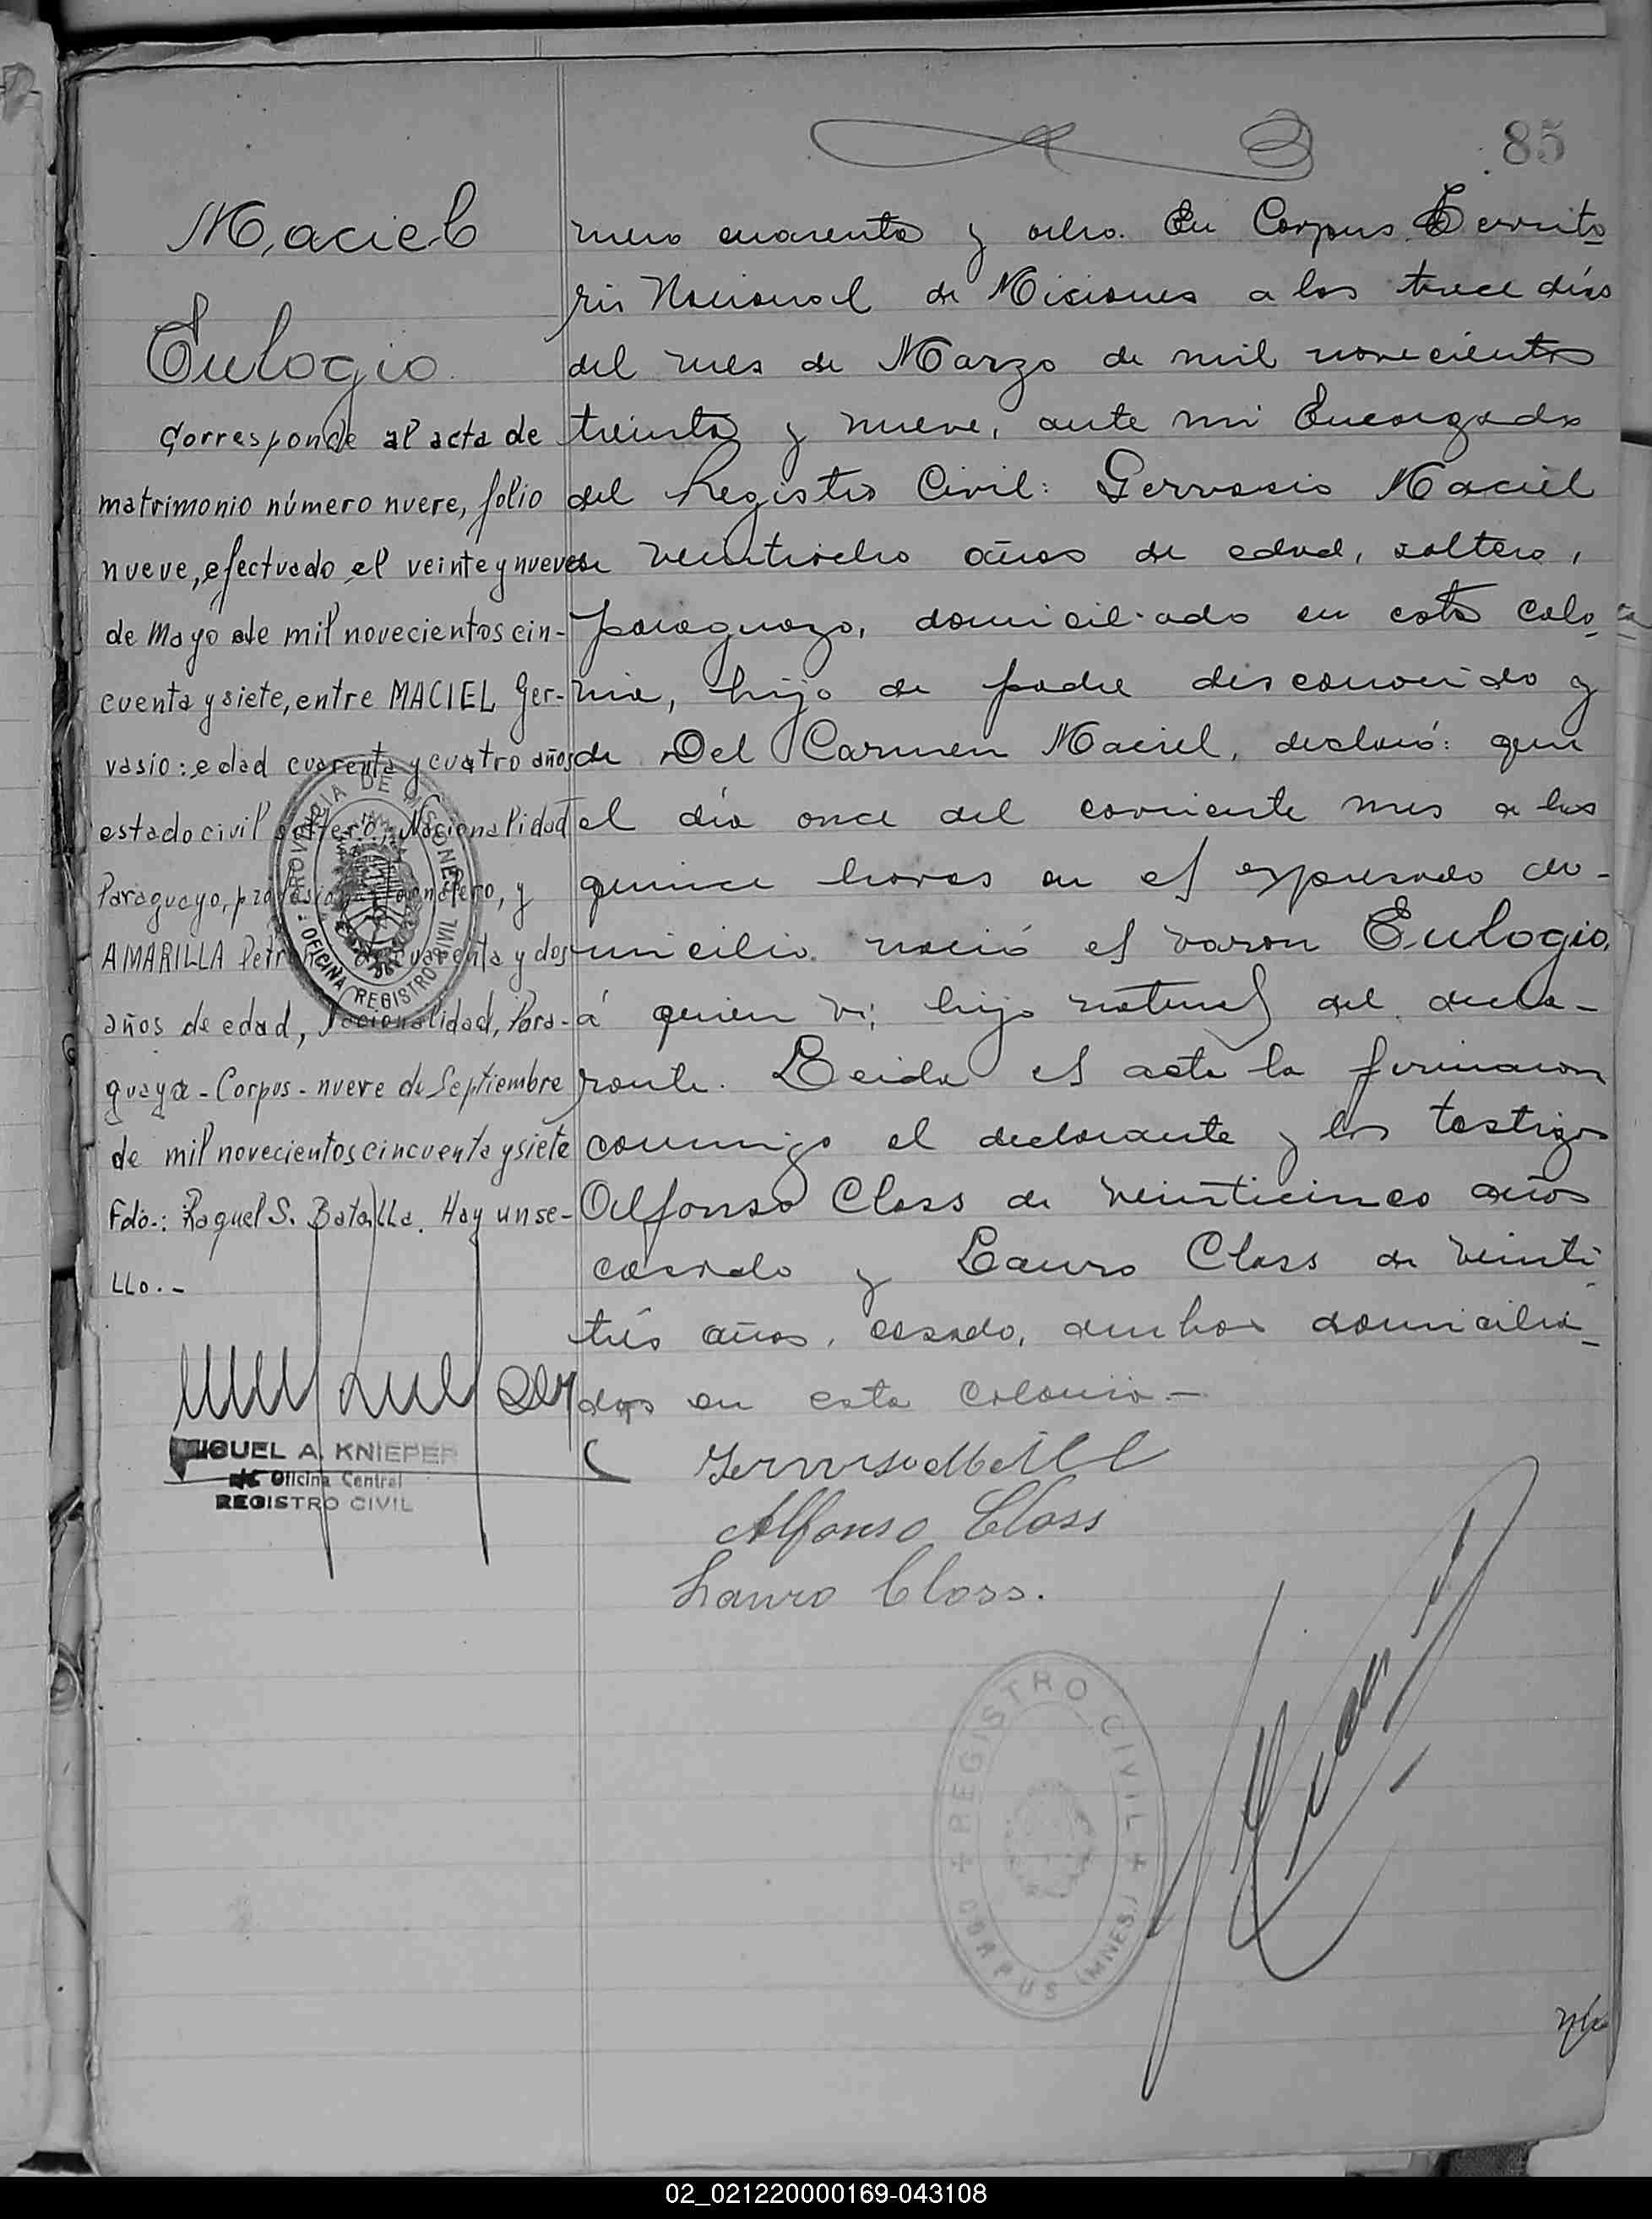 85
Maciel
Eulogio
Corresponde al acta de
matrimonio número nueve, folio
nueve, efectuado el veinte y nueve
de Mayo de mil novecientos cin-
cuenta y siete, entre MACIEL Ger-
vasio: edad cuarenta y cuatro años
estado civil soltero, Nacionalidad
Paraguayo, profesión Jornalero, y
AMARILLA cuarenta y dos
años de edad, Nacionalidad, Para-
guaya - Corpus - nueve de Septiembre
de mil novecientos cincuenta y siete
Fdo.: Raquel S. Batalla. Hay un se-
llo.-
MIGUEL A. KNIEPER
Oficina Central
REGISTRO CIVIL
PROVINCIA DE MISIONES
OFICINA REGISTRO CIVIL
mero cuarenta y ocho. En Corpus Territo
rio Nacional de Misiones a los trece días
del mes de Marzo de mil novecientos
treinta y nueve, ante mi Encargado
del Registro Civil: Gervasio Maciel
de veintiocho años de edad, soltero,
paraguayo, domiciliado en esta colo
nia, hijo de padre desconocido y
de Del Carmen Maciel, declaró: que
el día once del corriente mes a las
quince horas en el expresado do-
micilio nació el varon Eulogio,
á quien vi; hijo natural del decla-
rante. Leida el acta la firmaron
conmigo el declarante y los testigos
Alfonso Closs de veinticinco años
casado y Lauro Closs de veinti
trés años, casado, ambos domicilia-
dos en esta colonia.-
Alfonso Closs
Lauro Closs.
REGISTRO CIVIL
CORPUS (MNES.)
02_021220000169-043108